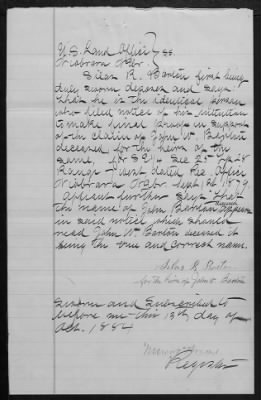 U.S. Land Office } ss.
Niobrara Nebr.
Silas R. Barton first being
duly sworn deposes and says:
that he is the identical person
who filed notice of his intention
to make final proof in support
of the claim of John W. Barton
deceased for the heirs of the
same, for SE 1/4 Sec 25 Tp 28
Range 7 west dated Rec. Office
Niobrara Nebr Sept 1879.
Affiant further says that
the name of John Barton appears
in said notice which should
read John W. Barton deceased it
being the true and correct name.
Silas R. Barton
for the heirs of John W. Barton
Sworn and Subscribed to
before me this 13th day of
Oct. 1884
Register